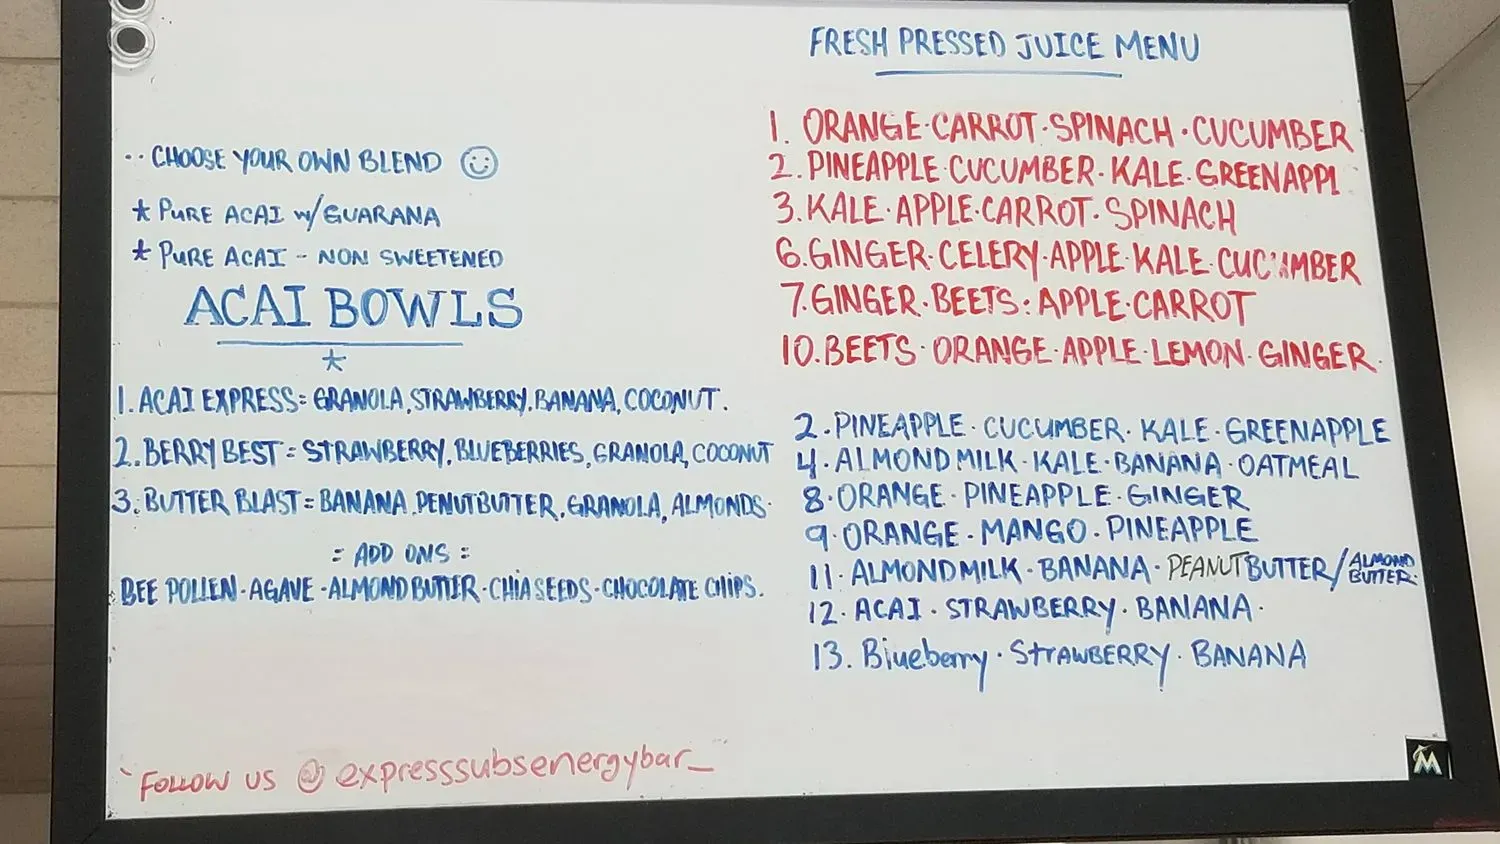 ·· CHOOSE YOUR OWN BLEND
* PURE ACAI W/GUARANA
* PURE ACAI - NON SWEETENED
ACAI BOWLS
*
1. ACAI EXPRESS = GRANOLA, STRAWBERRY, BANANA, COCONUT.
2. BERRY BEST = STRAWBERRY, BLUEBERRIES, GRANOLA, COCONUT
3. BUTTER BLAST = BANANA, PENUTBUTTER, GRANOLA, ALMONDS.
= ADD ONS =
BEE POLLEN · AGAVE · ALMOND BUTTER · CHIA SEEDS · CHOCOLATE CHIPS.
FOLLOW US @expresssubsenergybar_
FRESH PRESSED JUICE MENU
1. ORANGE · CARROT · SPINACH · CUCUMBER
2. PINEAPPLE · CUCUMBER · KALE · GREENAPPL
3. KALE · APPLE · CARROT · SPINACH
6. GINGER · CELERY · APPLE · KALE · CUCUMBER
7. GINGER · BEETS : APPLE · CARROT
10. BEETS · ORANGE · APPLE · LEMON · GINGER.
2 · PINEAPPLE · CUCUMBER · KALE · GREENAPPLE
4 · ALMOND MILK · KALE · BANANA · OATMEAL
8 · ORANGE · PINEAPPLE · GINGER
9 · ORANGE · MANGO · PINEAPPLE
11 · ALMOND MILK · BANANA · PEANUT BUTTER / ALMOND BUTTER.
12 · ACAI · STRAWBERRY · BANANA ·
13. Blueberry · STRAWBERRY · BANANA
M